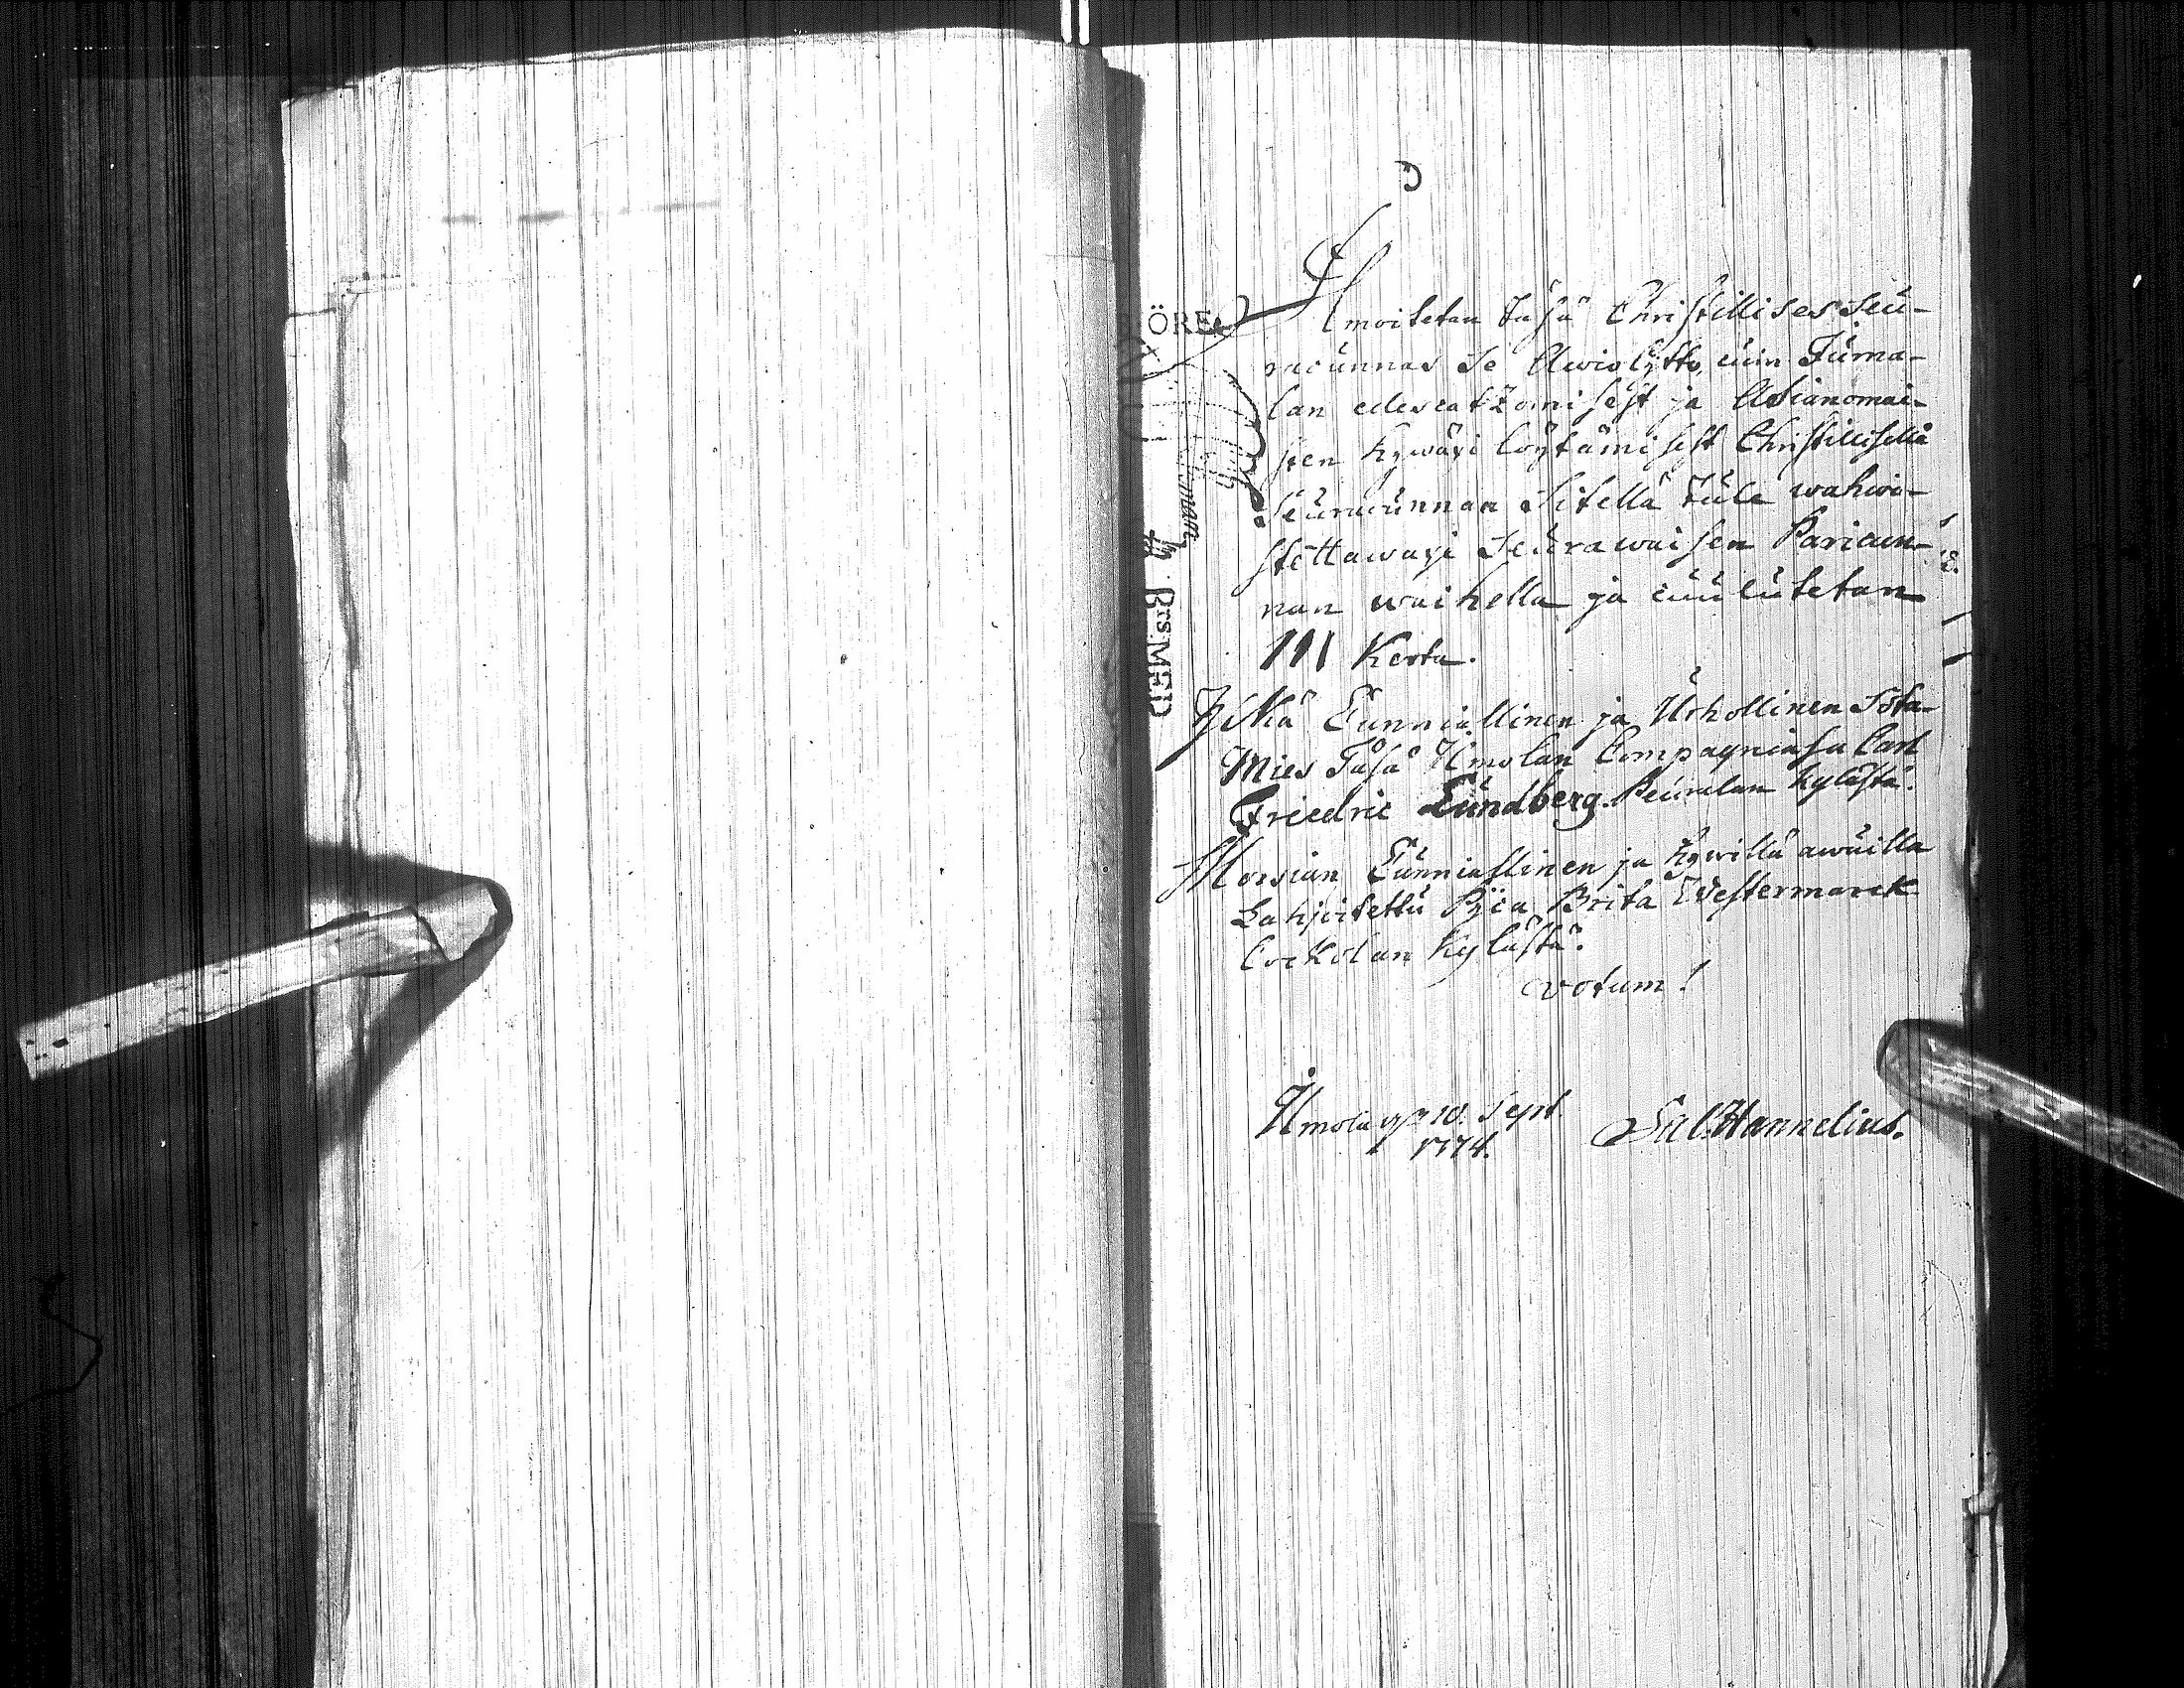 Ilmoitetan täsä Christillises Seu-
racunnas se Awiolijtto, cuin Juma-
lan edescatzomisest ja Asianomai-
sten hywäxi löytämisest Christillisellä
Seuracunnan Sitellä tule wahwi-
stettawaxi seurawaisen Paricun-
nan waihella ja cuulutetan
III Kerta.
Ylkä Cunniallinen ja Urhollinen Sota-
Mies Täsä Ilmolan Compagniasa Carl
Friedric Lundberg Peuralan kylästä.
Morsian Cunniallinen ja hywillä awuilla
Lahjoitettu Pijca Brita Westermarck
Cockolan kylästä.
votum!
Ilmola 10. Sept
1774.
Sal. Hannelius.
ÖRE
Brs MED